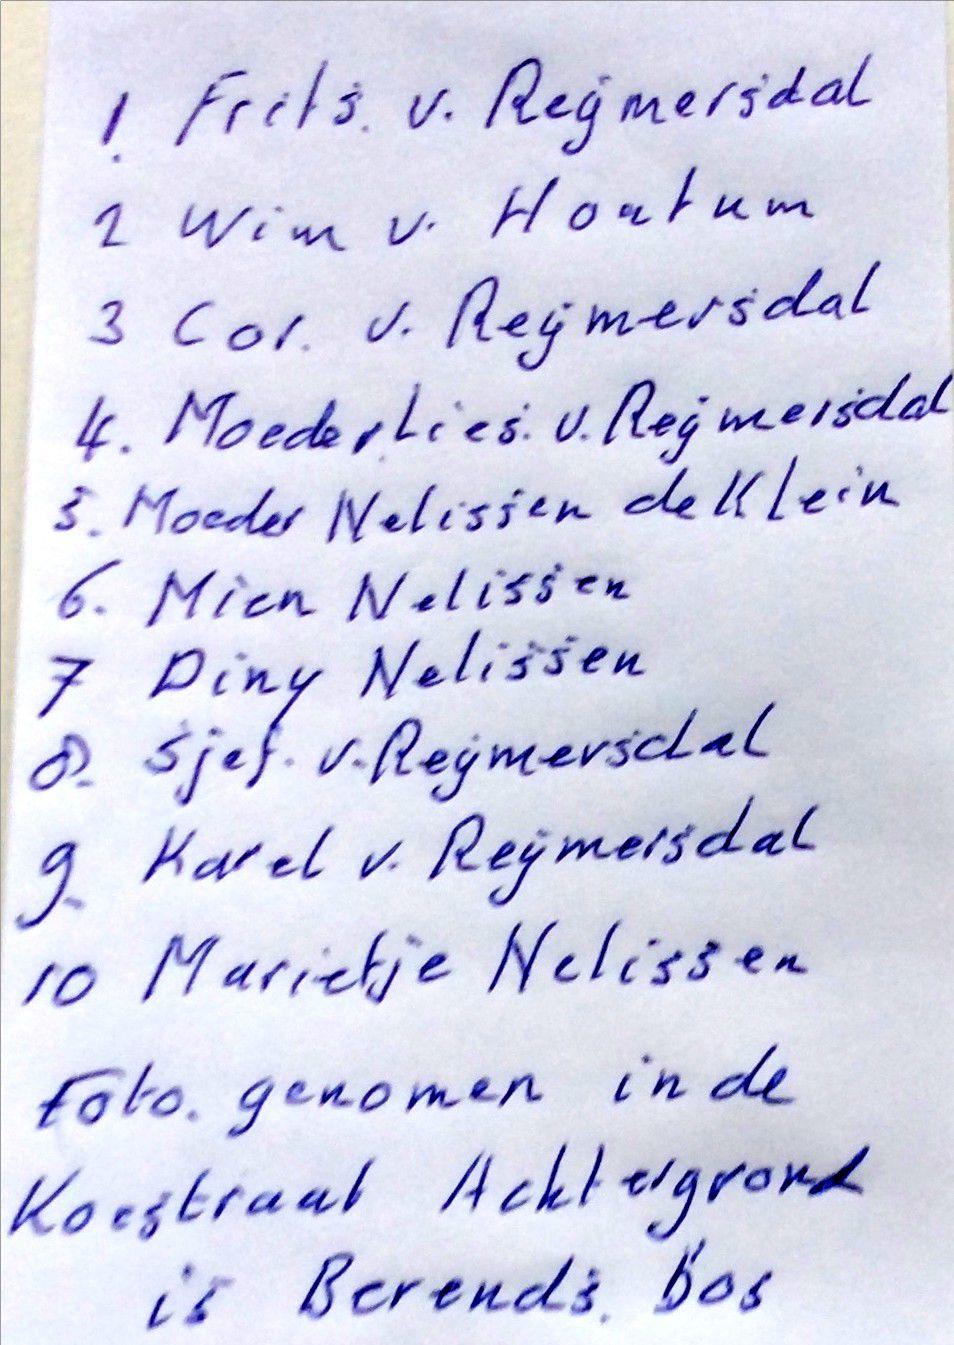 1. Frits. v. Reÿmersdal
2 Wim v. Houtum
3 Cor. v. Reÿmersdal
4. Moeder Lies. v. Reÿmersdal
5. Moeder Nelissen de Klein
6. Mien Nelissen
7 Diny Nelissen
8. Sjef. v. Reÿmersdal
9. Karel v. Reÿmersdal
10 Marietje Nelissen
Foto. genomen in de
Koestraat Achtergrond
is Berends. Bos